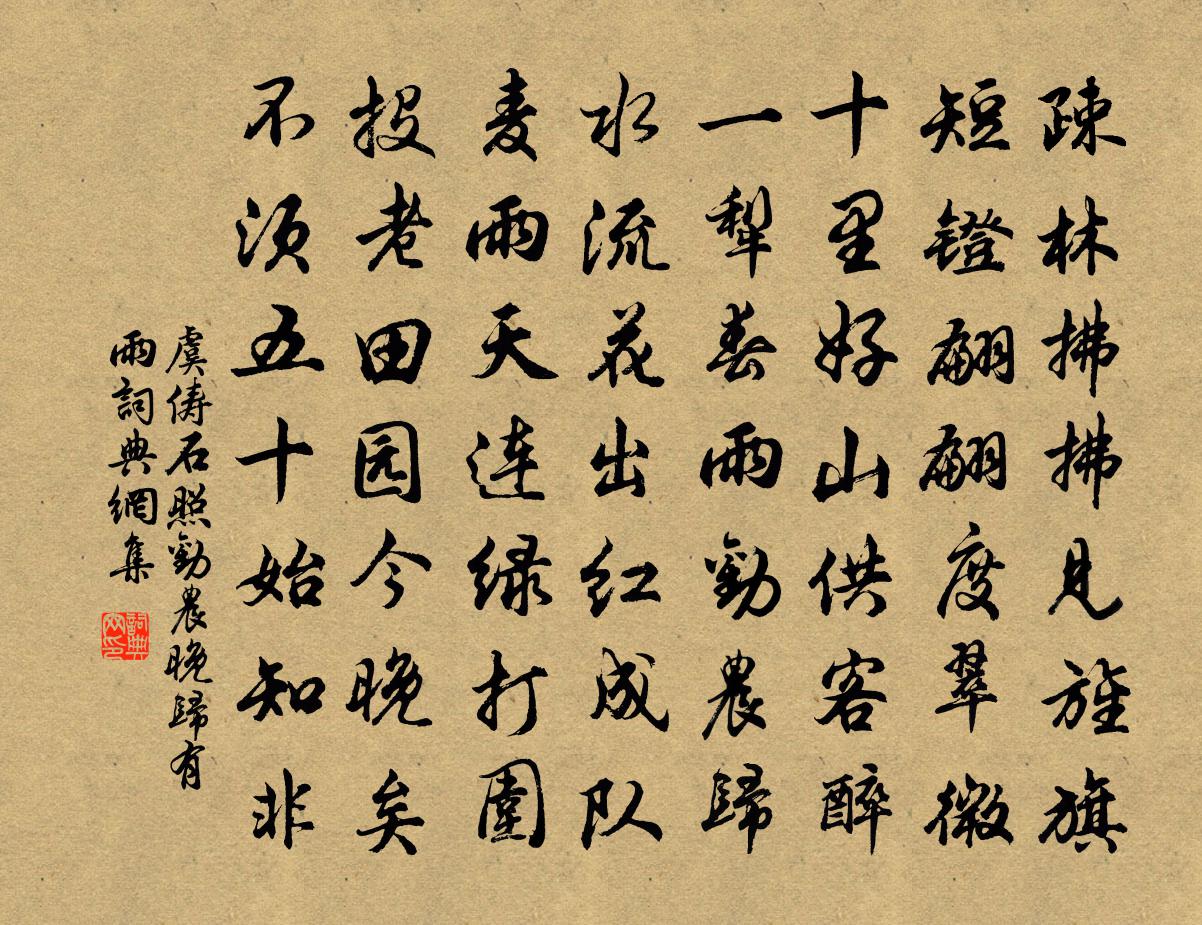 踈林拂拂见旌旗
短镫翩翩度翠微
十里好山供客醉
一犁春雨勸農歸
水流花出红成队
麦雨天连绿打圍
投老田园今晚矣
不须五十始知非
虞儔石照勸農晚歸有
雨詞典網集
詞典网印